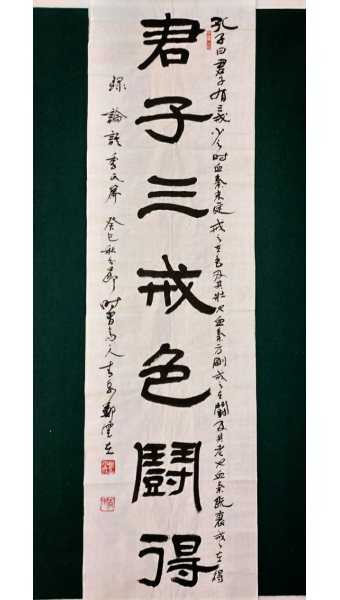 孔子曰君子有三戒少之时血气未定戒之在色及其壮也血气方刚戒之在鬪及其老也血气既衰戒之在得
君子三戒色鬪得
録論語季氏篇癸巳秋分節时客
鄭雲在